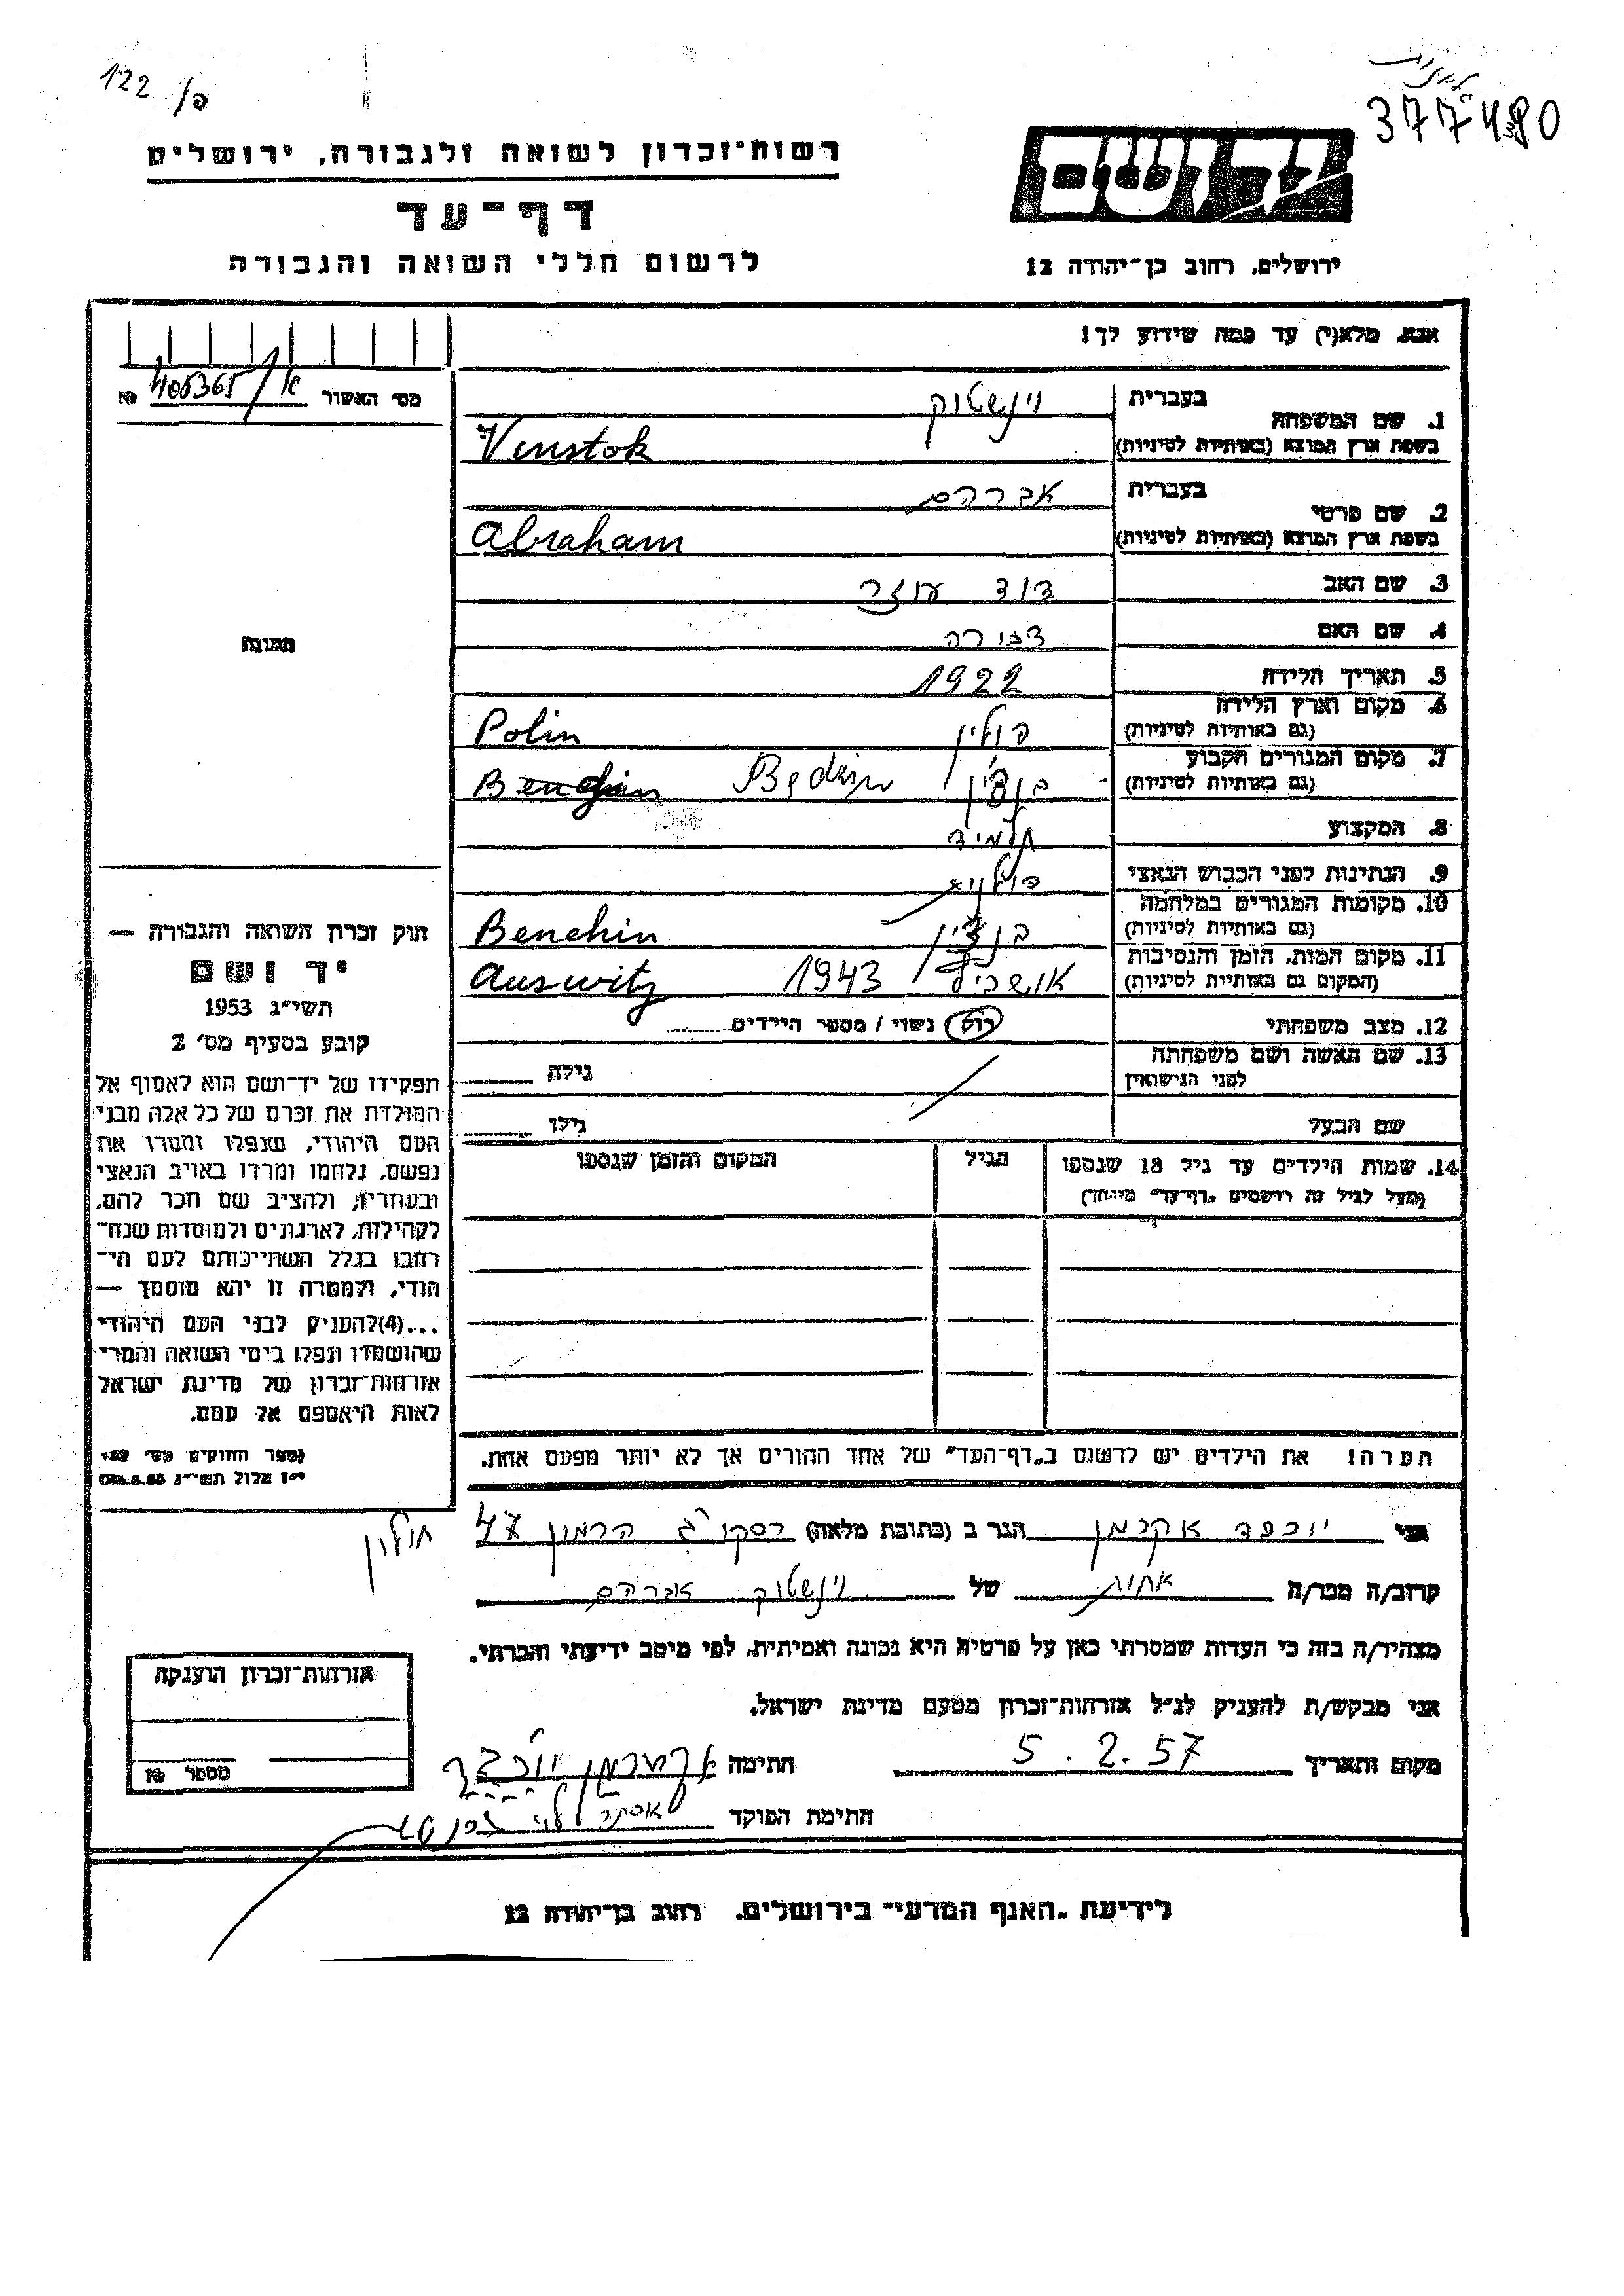 122 / פ
377480
רשות־זכרון לשואה ולגבורה, ירושלים
יד ושם
דף־עד
לרשום חללי השואה והגבורה
ירושלים, רחוב בן־יהודה 12
אנא, מלא(י) עד כמה שידוע לך!
מס׳ האשור № 405365/א
1. שם המשפחה בעברית וינשטוק
בשפת ארץ המוצא (באותיות לטיניות) Vinstok
2. שם פרטי בעברית אברהם
בשפת ארץ המוצא (באותיות לטיניות) Abraham
3. שם האב דוד עוזר
4. שם האם דבורה
תמונה
5. תאריך הלידה 1922
6. מקום וארץ הלידה פולין Polin
(גם באותיות לטיניות)
7. מקום המגורים הקבוע בנדין Będzin
(גם באותיות לטיניות)
8. המקצוע תלמיד
9. הנתינות לפני הכבוש הנאצי
10. מקומות המגורים במלחמה בנדין Benchin
(גם באותיות לטיניות)
11. מקום המות, הזמן והנסיבות 1943 Auswitz
(המקום גם באותיות לטיניות)
12. מצב משפחתי רוק / נשוי / מספר הילדים
13. שם האשה ושם משפחתה גילה
לפני הנישואין
שם הבעל גילו
14. שמות הילדים עד גיל 18 שנספו הגיל המקום והזמן שנספו
(מעל לגיל זה רושמים „דף־עד״ מיוחד)
חוק זכרון השואה והגבורה —
יד ושם
תשי״ג 1953
קובע בסעיף מס׳ 2
תפקידו של יד־ושם הוא לאסוף אל
המולדת את זכרם של כל אלה מבני
העם היהודי, שנפלו ומסרו את
נפשם, נלחמו ומרדו באויב הנאצי
ובעוזריו, ולהציב שם וזכר להם,
לקהילות, לארגונים ולמוסדות שנח־
רבו בגלל השתייכותם לעם הי־
הודי, ולמטרה זו יהא מוסמך —
...(4)להעניק לבני העם היהודי
שהושמדו ונפלו בימי השואה והמרי
אזרחות־זכרון של מדינת ישראל
לאות היאספם אל עמם.
(ספר החוקים מס׳ 132
י״ז אלול תשי״ג 28.8.53)
הערה! את הילדים יש לרשום ב„דף־העד״ של אחד ההורים אך לא יותר מפעם אחת.
אני יוכבד אקרמן הגר ב (כתובת מלאה) רסקו ג׳ הרמון 47
חולון
קרוב/ה מכר/ה אחות של וינשטוק אברהם
מצהיר/ה בזה כי העדות שמסרתי כאן על פרטיה היא נכונה ואמיתית, לפי מיטב ידיעתי והכרתי.
אני מבקש/ת להעניק לנ״ל אזרחות־זכרון מטעם מדינת ישראל.
מקום ותאריך 5.2.57 חתימה אקרמן יוכבד
חתימת הפוקד
אזרחות־זכרון הוענקה
מספר №
לידיעת „האגף המדעי״ בירושלים, רחוב בן־יהודה 12